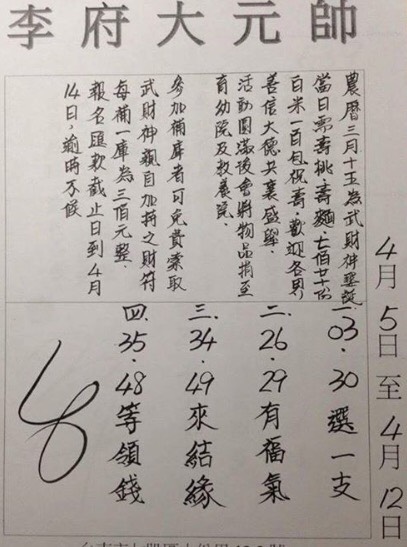 李府大元帥
4月5日至4月12日
農曆三月十五為武財神聖誕
當日需壽桃壽麵、七佰廿十份
白米一百包祝壽、歡迎各界
善信大德共襄盛舉、
活動圓滿後會將物品捐至
育幼院及教養院。
參加補庫者可免費索取
武財神親自加持之財符
每補一庫為三佰元整、
報名匯款截止日到4月
14日,逾時不候
一.03.30選一支
二.26.29有福氣
三.34.49來結緣
四.35.48等領錢